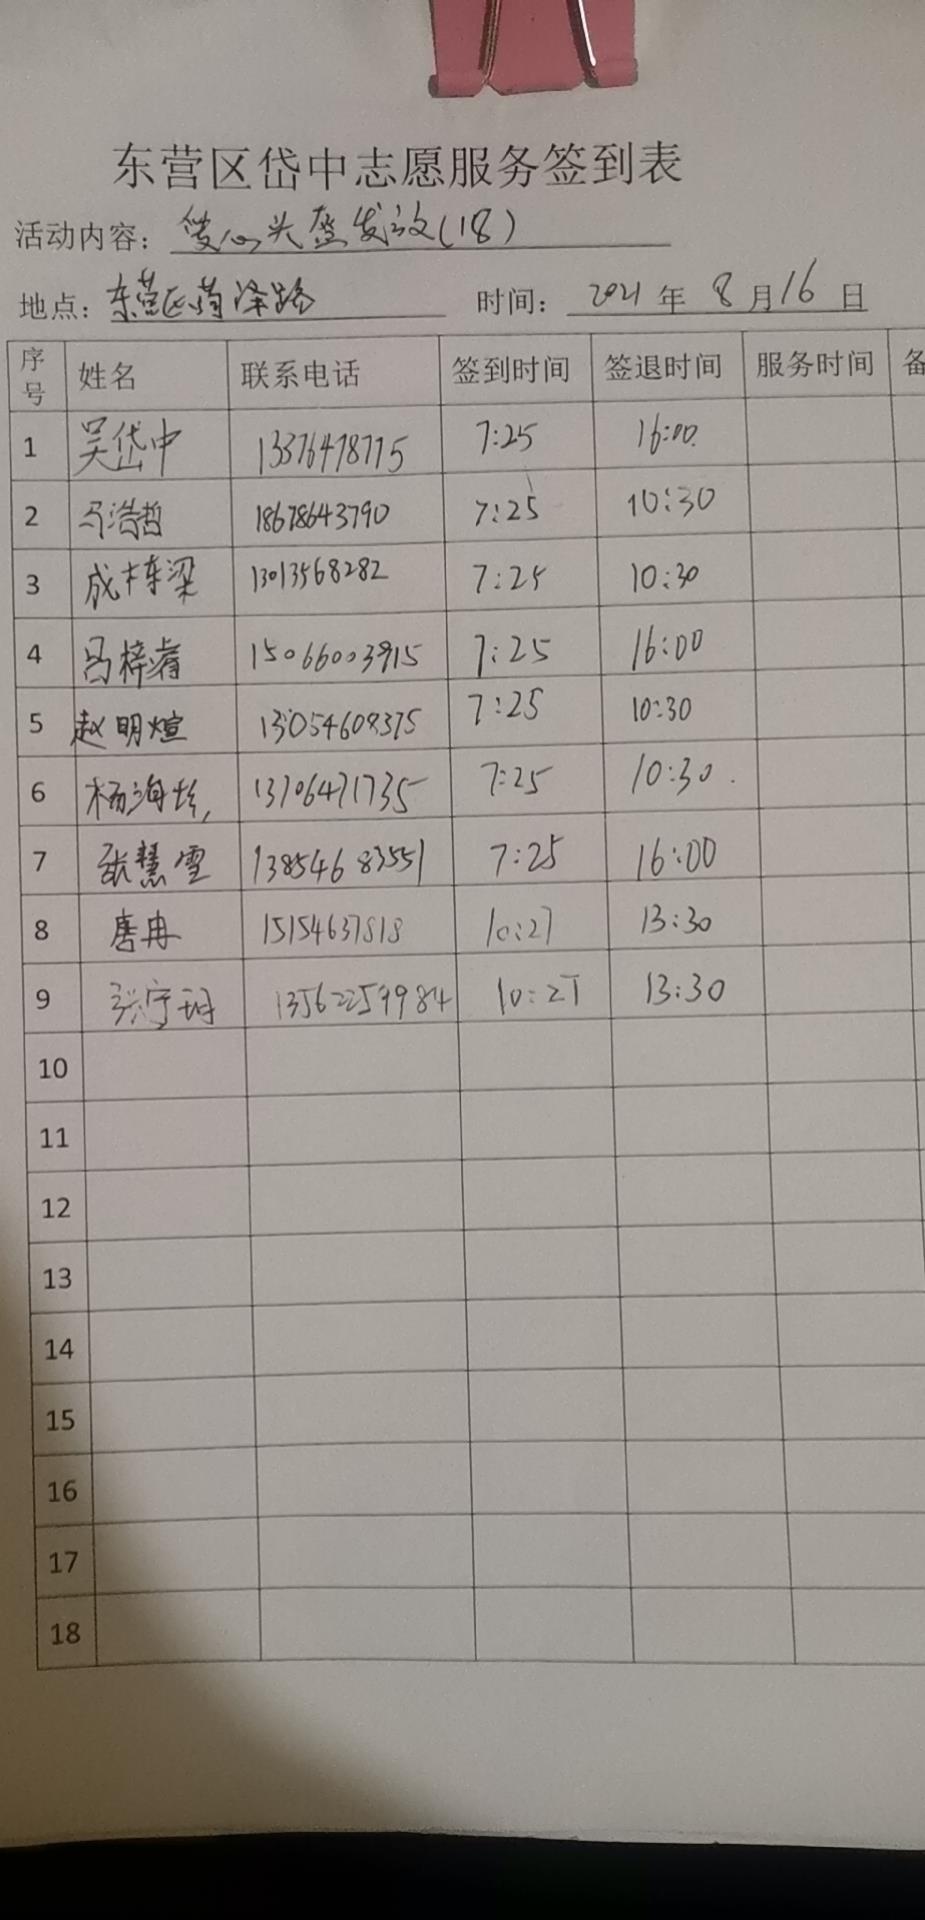 东营区岱中志愿服务签到表
活动内容：爱心头盔发放(18)
地点：东营区菏泽路 时间：2021年8月16日
序号 姓名 联系电话 签到时间 签退时间 服务时间 备
1 吴岱中 13376478775 7:25 16:00
2 马浩哲 18678643790 7:25 10:30
3 成栋梁 13013568282 7:25 10:30
4 吕梓睿 15066003915 7:25 16:00
5 赵明煊 13054609375 7:25 10:30
6 13706471735 7:25 10:30
7 张慧雪 13854683551 7:25 16:00
8 唐冉 15154637818 10:27 13:30
9 10:27 13:30
10
11
12
13
14
15
16
17
18